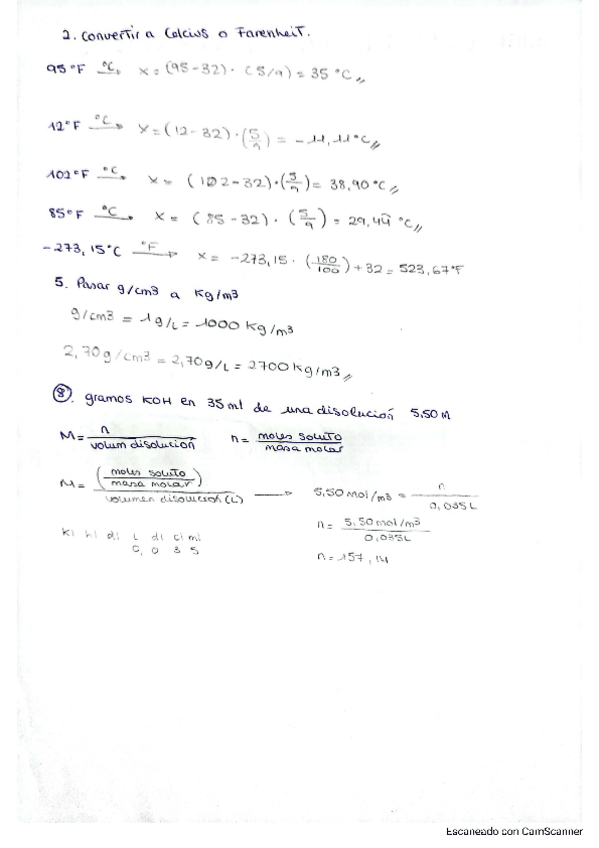 2. Convertir a Celcius o Farenheit.
95°F °C→ x = (95-32) · (5/9) = 35 °C //
12°F °C→ x = (12-32) · (5/9) = -11,11°C //
102°F °C→ x = (102-32) · (5/9) = 38,90 °C //
85°F °C→ x = (85-32) · (5/9) = 29,44 °C //
-273,15°C °F→ x = -273,15 · (180/100) + 32 = 523,67°F
5. Pasar g/cm3 a Kg/m3
g/cm3 = 1 g/L = 1000 Kg/m3
2,70g/cm3 = 2,70g/L = 2700 Kg/m3 //
8. gramos KOH en 35ml de una disolución 5,50 M
M = n / volum disolucion n = moles soluto / masa molar
M = (moles soluto / masa molar) / volumen disolucion (L) → 5,50 mol/m3 = n / 0,035L
n = 5,50 mol/m3 / 0,035L
Ki hi di L di ci mi
0, 0 3 5
n = 157,14
Escaneado con CamScanner